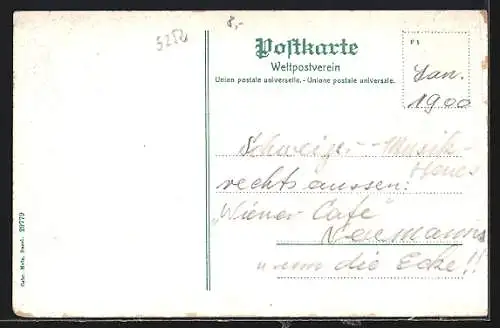 5252
8,-
Postkarte
Weltpostverein
Union postale universelle. - Unione postale universale.
P 1
Jan.
1900
Schweizer-Musik-
Haus
rechts aussen:
"Wiener Café"
Neumanns
um die Ecke!!
Gebr. Metz, Basel. 29779